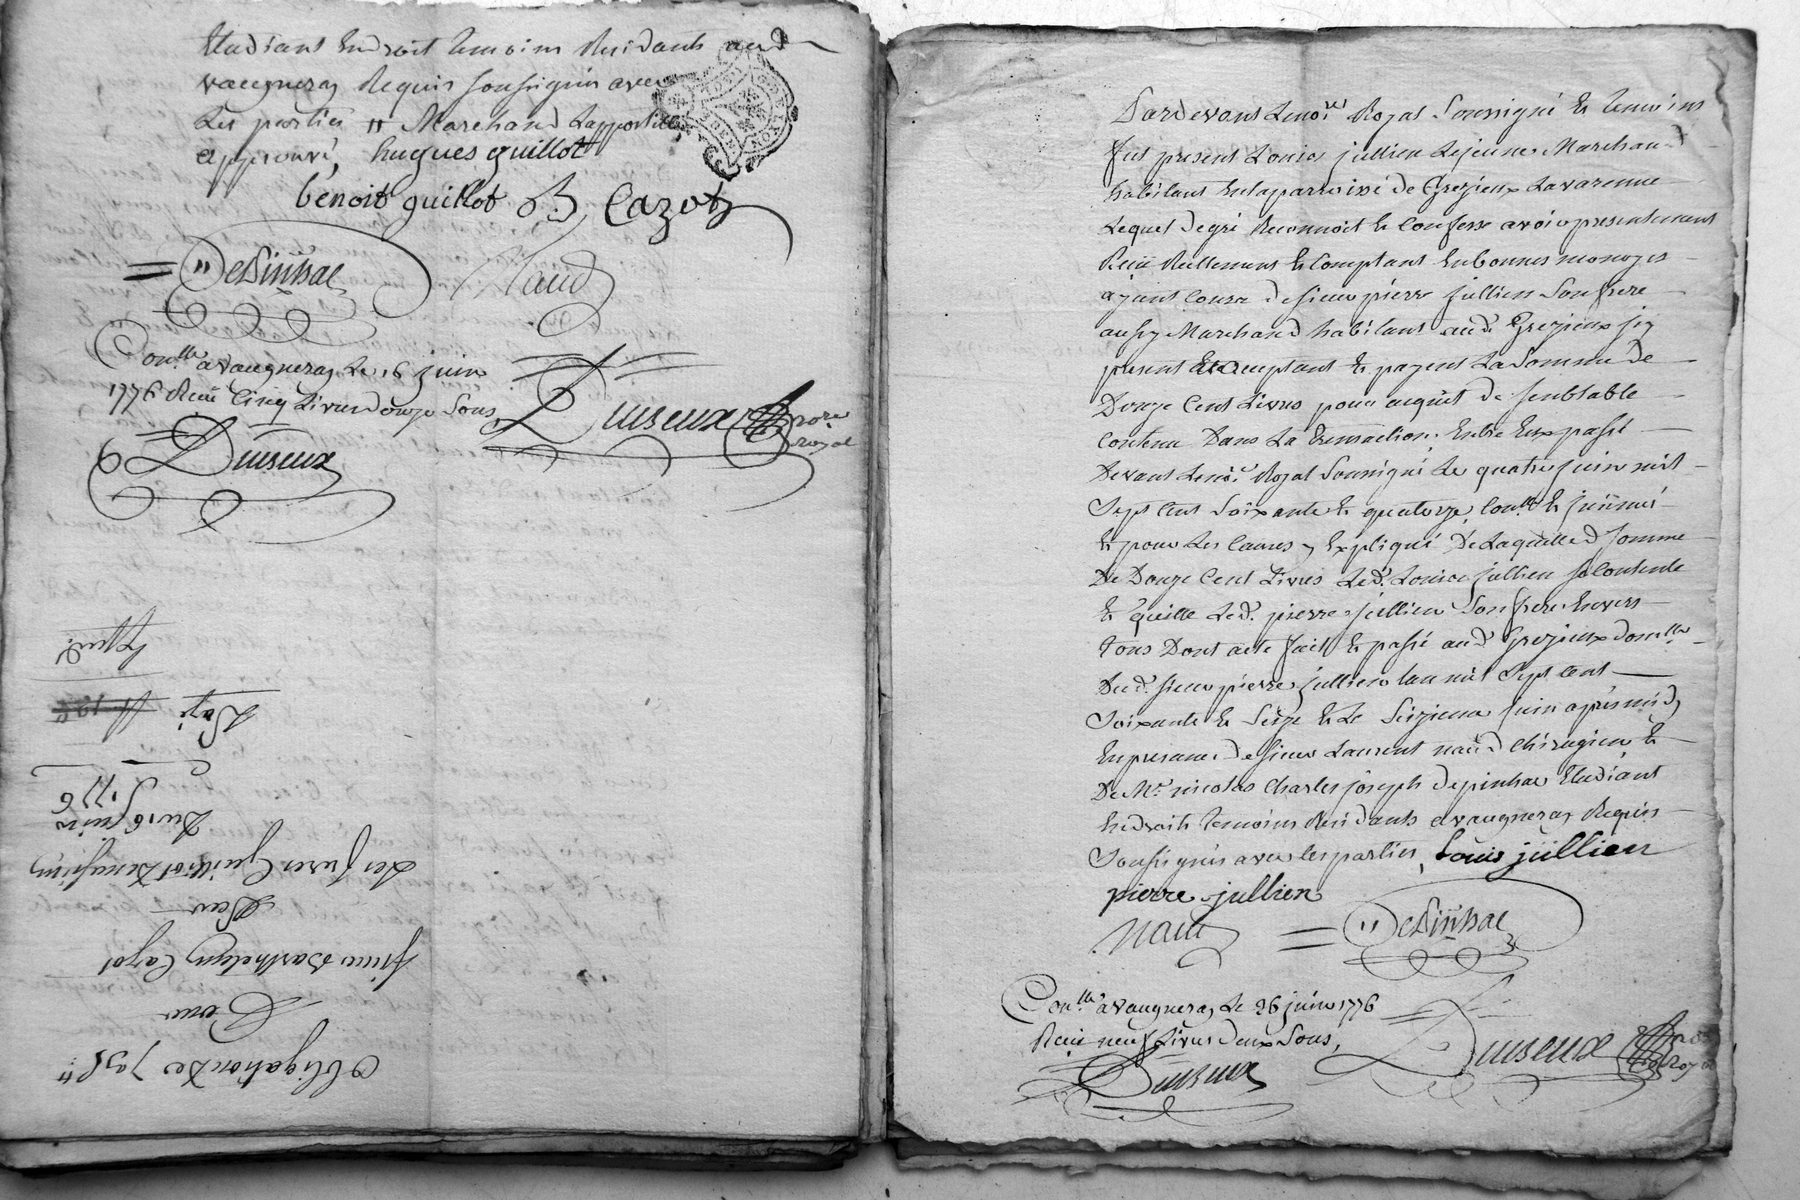 Etudiant en droit temoins Residants aud
vaugneray Requis soussignés avec
Les parties " Marchand
approuvé, hugues guillot
benoit guillot B Cazot
= " Depinhac Naud
Con.lle a vaugneray Le 16 juin
1776 Reçu Cinq Livres douze Sous,
Duiseux no.re
royal
Duiseux
Exped.
Layé
Du 16 juin
1776
Les freres Guillot
Par
Sieur Barthelemy Cazot
Pour
Obligation de
Pardevant Le no.re Royal Soussigné Et temoins
fut present Louis jullien Le jeune Marchand
habitant En la parroisse de Grezieu La varenne
Lequel de gré Reconnoit Et Confesse avoir presentement
Reçu Réellement Et Comptant En bonnes monoyes
ayant Cours de sieur pierre jullien Son frere
aussy Marchand habitant aud. Grezieux icy
present Et acceptant Et payant La Somme de
Douze Cent Livres pour acquit de semblable
Contenu Dans La transaction Entre Eux passé
Devant Le no.re Royal Soussigné Le quatre juin mil
Sept Cent Soixante Et quatorze, Con.llé Et insinué
Et pour Les Causes y Expliqué De Laquelle d. somme
De Douze Cent Livres Led. Louis jullien se Contente
Et quitte Led. pierre jullien Son frere Envers
tous Dont acte fait Et passé aud. Grezieux dom.lle
Dud. sieur pierre jullien Lan mil Sept Cent
Soixante Et Seize Et Le Seizieme juin après midy
En presence de sieur Laurent naud Chirugien Et
De M.r nicolas Charles joseph depinhac Etudiant
En droit temoins Residants a vaugneray Requis
Soussignés avec les parties, Louis jullien
pierre jullien
naud = " Depinhac
Con.lle a vaugneray Le 26 juin 1776
Reçu neuf Livres deux Sous,
Duiseux
Duiseux no.re
Royal